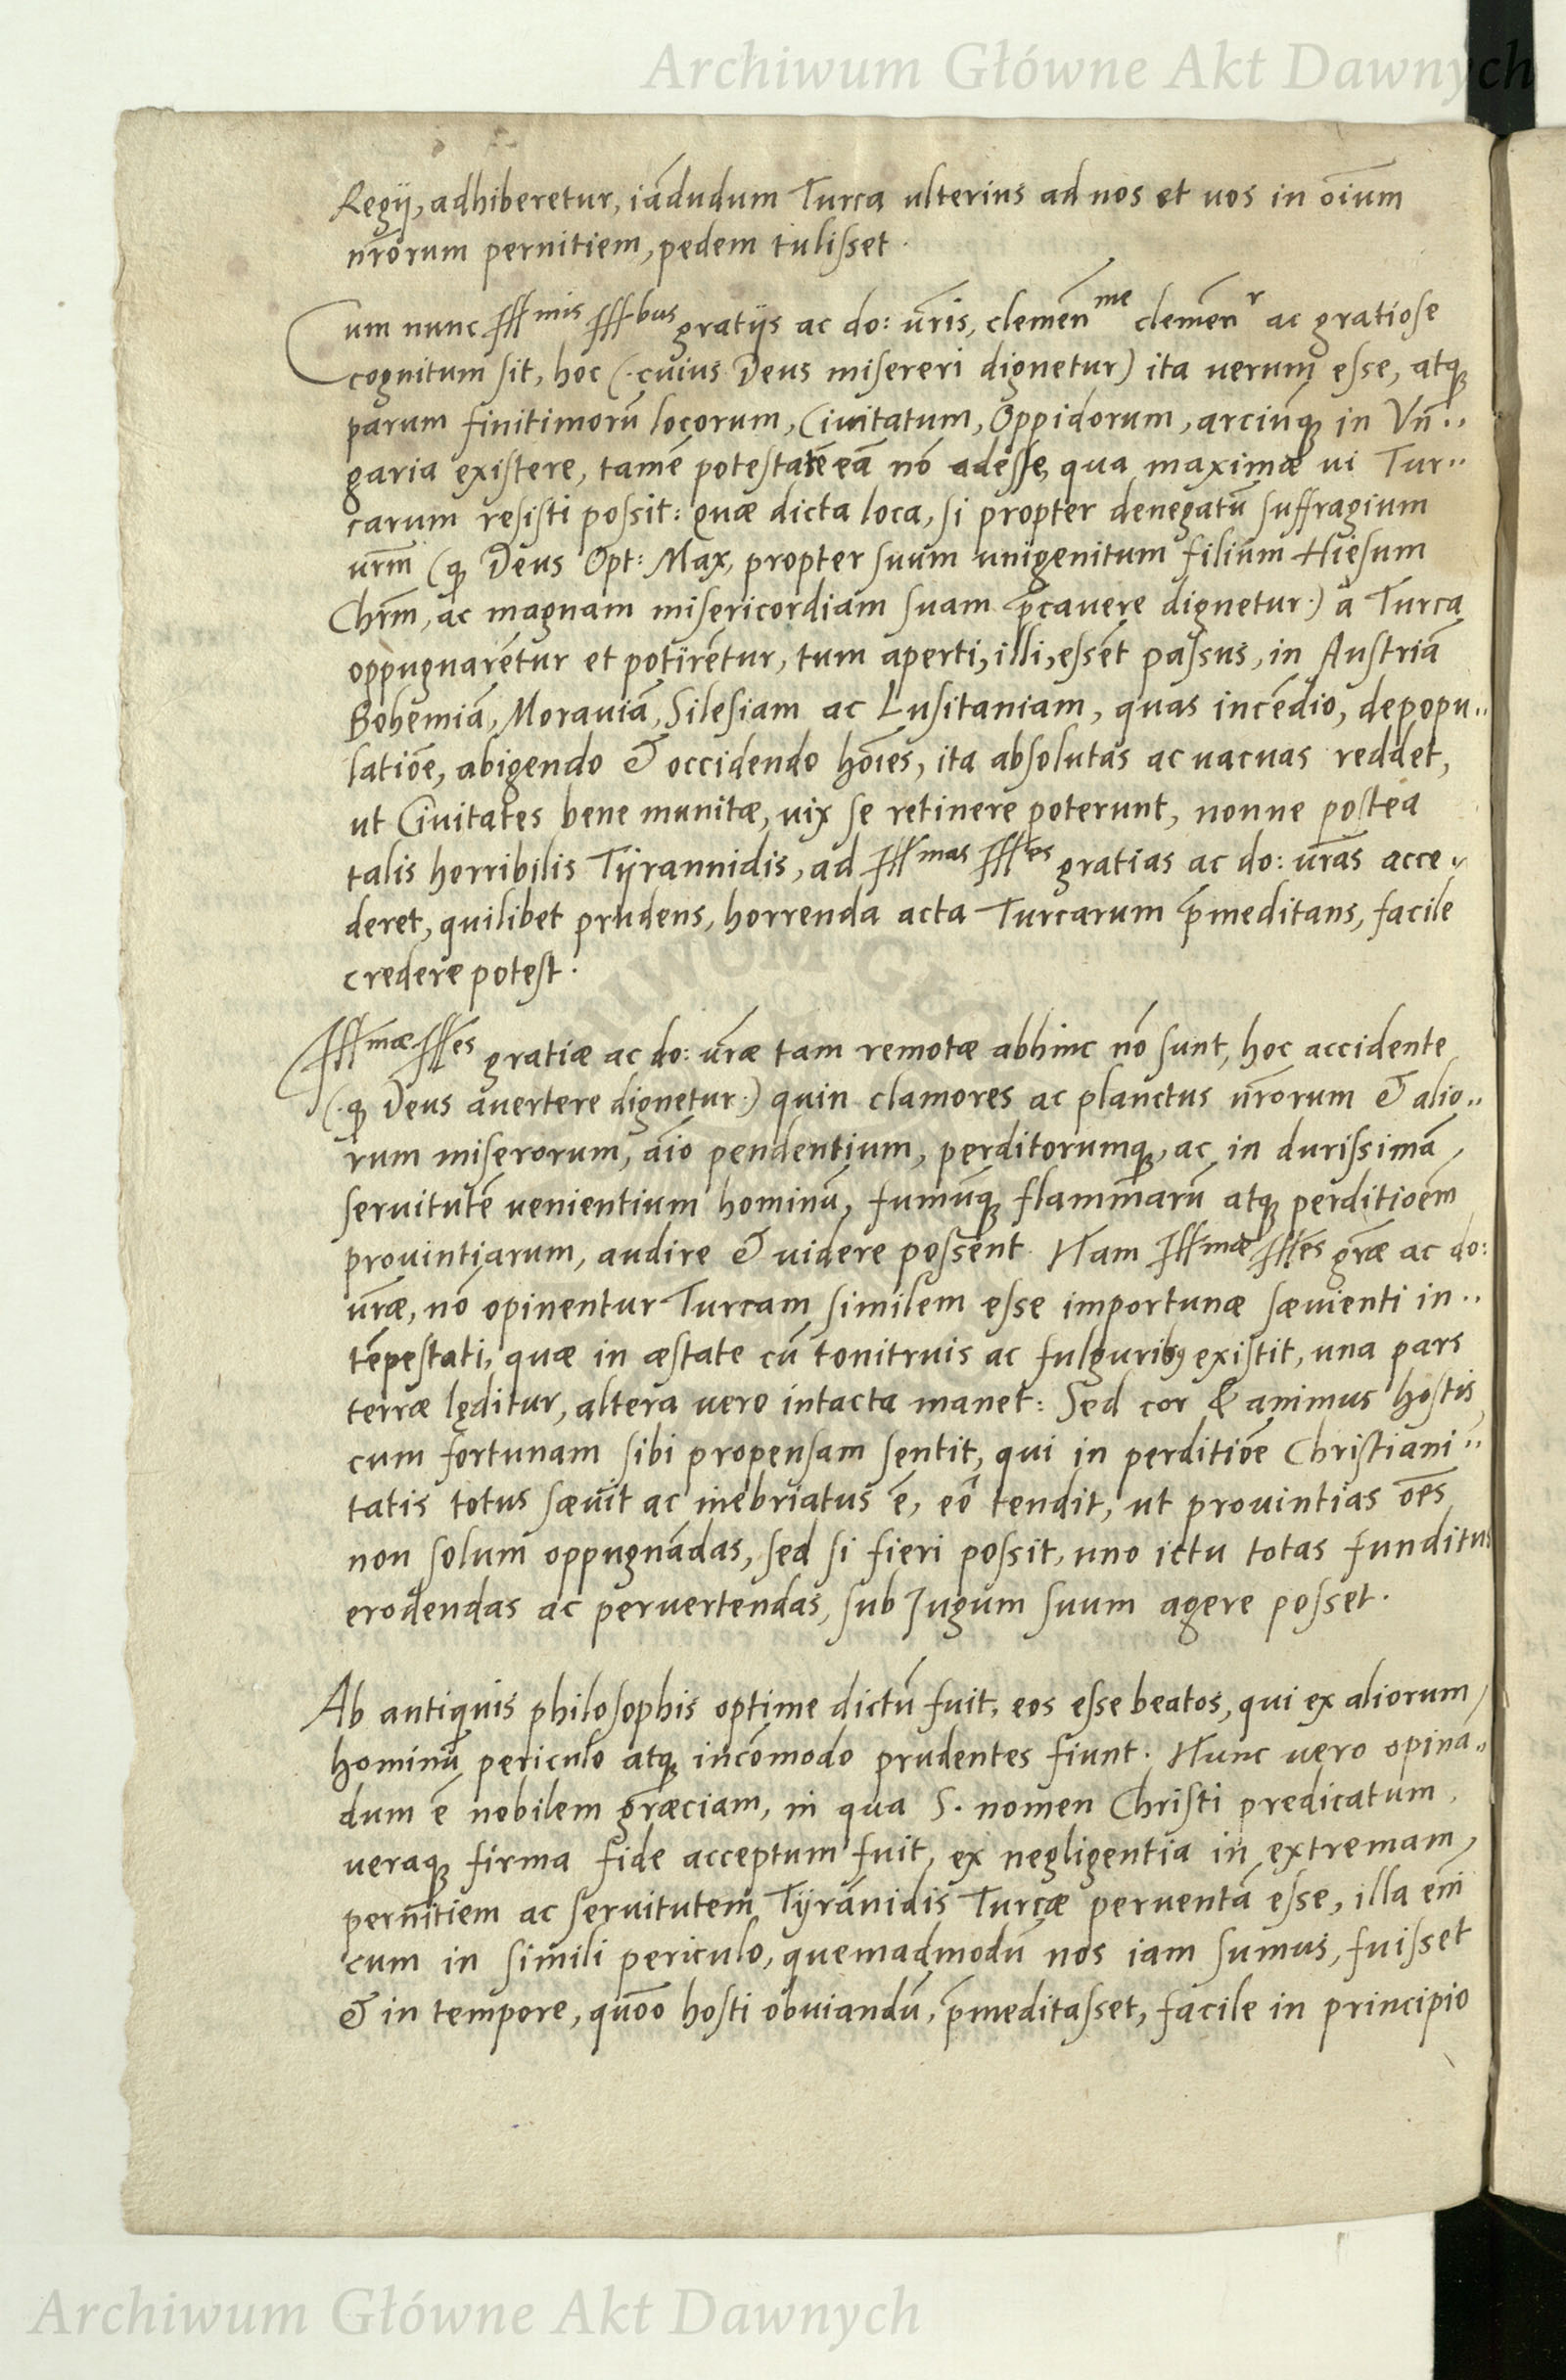 Archiwum Główne Akt Dawnych
Regij, adhiberetur, iādudum Turca ulterius ad nos et uos in oīum
nr̄orum pernitiem, pedem tulisset.
Cum nunc Illmis Illbus gratijs ac do: ur̄is, clemen̄me clemen̄r ac gratiose
cognitum sit, hoc (.cuius Deus misereri dignetur) ita uerum esse, atq
parum finitimorū locorum, Ciuitatum, Oppidorum, arciūq in Vn̄..
garia existere, tamē potestatē eā nō adesse, qua maximæ ui Tur..
carum resisti possit: quæ dicta loca, si propter denegatū suffragium
ur̄m (q Deus Opt: Max, propter suum unigenitum filium Hiesum
Chr̄m, ac magnam misericordiam suam p̄cauere dignetur.) a Turca
oppugnarētur et potirētur, tum aperti, illi, essēt passus, in Austriā
Bohemiā, Morauiā, Silesiam ac Lusitaniam, quas incēdio, depopu..
latiōe, abigendo & occidendo hōies, ita absolutas ac uacuas reddet,
ut Ciuitates bene munitæ, uix se retinere poterunt, nonne postea
talis horribilis Tÿrannidis, ad Illmas Illes gratias ac do: ur̄as acce..
deret, quilibet prudens, horrenda acta Turcarum p̄meditans, facile
credere potest.
Illmæ Illes gratiæ ac do: ur̄æ tam remotæ abhinc nō sunt, hoc accidente
(.q Deus auertere dignetur.) quin clamores ac planctus nr̄orum & alio..
rum miserorum, aīo pendentium, perditorumq, ac in durissimā
seruitutē uenientium hominū, fumūq flammarū atq perditioēm
prouintiarum, audire & uidere possent. Nam Illmæ Illes gr̄æ ac do:
ur̄æ, nō opinentur Turcam similem esse importunæ sæuienti in..
tēpestati, quæ in æstate cū tonitruis ac fulguribꝯ existit, una pars
terræ lęditur, altera uero intacta manet: Sed cor & animus hostis
cum fortunam sibi propensam sentit, qui in perditiōe Christiani..
tatis totus sæuit ac inebriatus ē, eō tendit, ut prouintias oēs
non solum oppugnādas, sed si fieri possit, uno ictu totas funditus
erodendas ac peruertendas, sub Jugum suum agere posset.
Ab antiquis philosophis optime dictū fuit, eos esse beatos, qui ex aliorum
hominū periculo atq incōmodo prudentes fiunt. Nunc uero opina..
dum ē nobilem græciam, in qua S. nomen Christi predicatum
ueraq firma fide acceptum fuit, ex negligentia in extremam
pernitiem ac seruitutem Tÿrānidis Turcæ peruentā esse, illa eni̅
cum in simili periculo, quemadmodū nos iam sumus, fuisset
& in tempore, quōo hosti obuiandū, p̄meditasset, facile in principio
Archiwum Główne Akt Dawnych